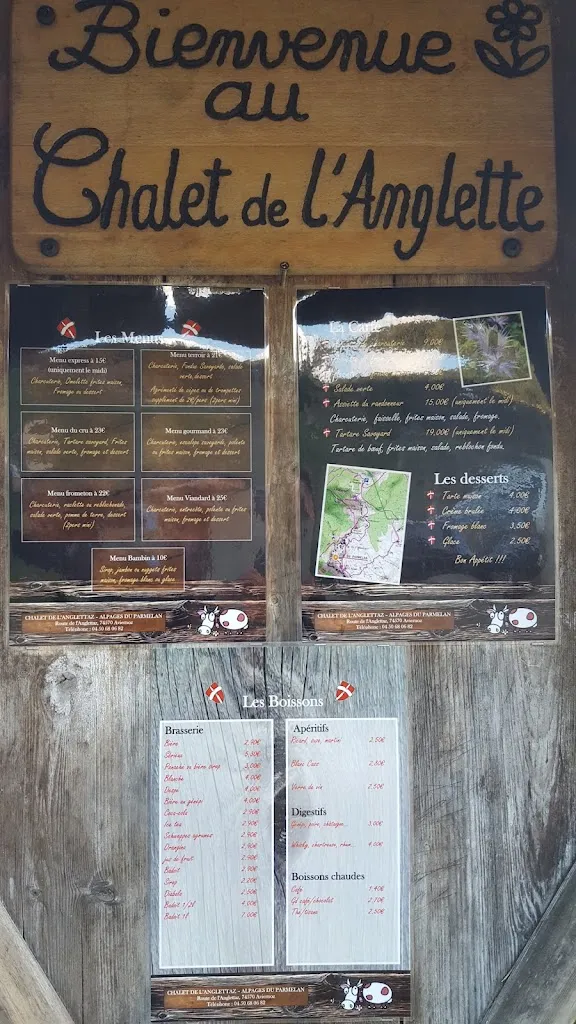 Bienvenue
au
Chalet de l'Anglette
Les Menus
Menu express à 15€
(uniquement le midi)
Charcuterie, Omelette frites maison,
Fromage ou dessert
Menu terroir à 21€
Charcuterie, Fondue Savoyarde, salade
verte, dessert
Agrémentée de cèpes ou de trompettes
supplément de 2€/pers (2pers mini)
Menu du cru à 23€
Charcuterie, Tartare savoyard, Frites
maison, salade verte, fromage et dessert
Menu gourmand à 23€
Charcuterie, escalope savoyarde, polenta
ou frites maison, fromage et dessert
Menu frometon à 22€
Charcuterie, raclette ou reblochonade,
salade verte, pomme de terre, dessert
(2pers mini)
Menu Viandard à 25€
Charcuterie, entrecôte, polenta ou frites
maison, fromage et dessert
Menu Bambin à 10€
Sirop, jambon ou nuggets frites
maison, fromage blanc ou glace
CHALET DE L'ANGLETTAZ - ALPAGES DU PARMELAN
Route de l'Anglettaz, 74570 Aviernoz
Téléphone : 04 50 68 06 82
La Carte
charcuterie 9,00€
Salade verte 4,00€
Assiette du randonneur 15,00€ (uniquement le midi)
Charcuterie, faisselle, frites maison, salade, fromage.
Tartare Savoyard 19,00€ (uniquement le midi)
Tartare de bœuf, frites maison, salade, reblochon fondu.
Les desserts
Tarte maison 4,00€
Crème brulée 4,00€
Fromage blanc 3,50€
Glace 2,50€
Bon Appétit !!!
CHALET DE L'ANGLETTAZ - ALPAGES DU PARMELAN
Route de l'Anglettaz, 74570 Aviernoz
Téléphone : 04 50 68 06 82
Les Boissons
Brasserie
Bière 2,90€
Sérieux 5,50€
Panaché ou bière sirop 3,00€
Blanche 4,00€
Despé 4,00€
Bière au génépi 4,00€
Coca-cola 2,90€
Ice tea 2,90€
Schweppes agrumes 2,90€
Orangina 2,90€
jus de fruit 2,90€
Badoit 2,90€
Sirop 2,20€
Diabolo 2,50€
Badoit 1/2l 4,00€
Badoit 1l 7,00€
Apéritifs
Ricard, suze, martini 2,50€
Blanc Cass 2,50€
Verre de vin 2,50€
Digestifs
Génépi, poire, châtaigne... 3,00€
Whisky, chartreuse, rhum... 4,00€
Boissons chaudes
Café 1,40€
Gd café/chocolat 2,70€
Thé/tisane 2,50€
CHALET DE L'ANGLETTAZ - ALPAGES DU PARMELAN
Route de l'Anglettaz, 74570 Aviernoz
Téléphone : 04 50 68 06 82